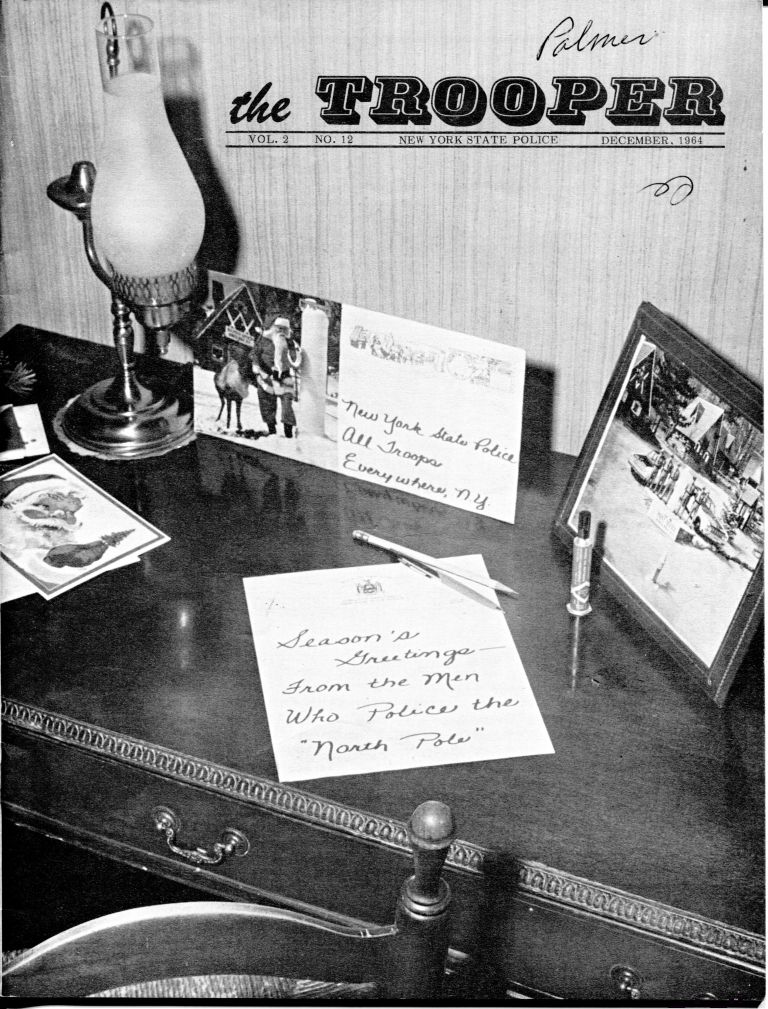 Palmer
the TROOPER
VOL. 2 NO. 12 NEW YORK STATE POLICE DECEMBER, 1964
New York State Police
All Troops
Everywhere, NY.
Season's
Greetings —
From the Men
Who Police the
"North Pole"